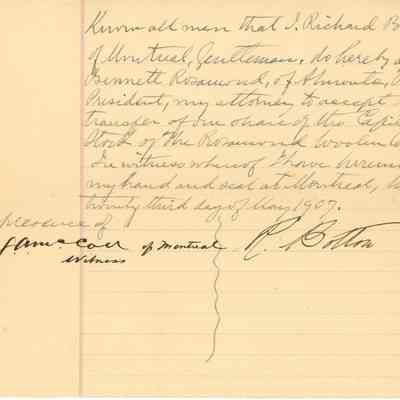 Know all men that I, Richard Bo
of Montreal, Gentleman, do hereby a
Bennett Rosamond, of Almonte,
President, my attorney to accept
transfer of one share of the Capi
Stock of The Rosamond Woolen Co
In witness whereof I have hereun
my hand and seal at Montreal, th
twenty third day of May 1907.
presence of
of Montreal R. Bolton
witness